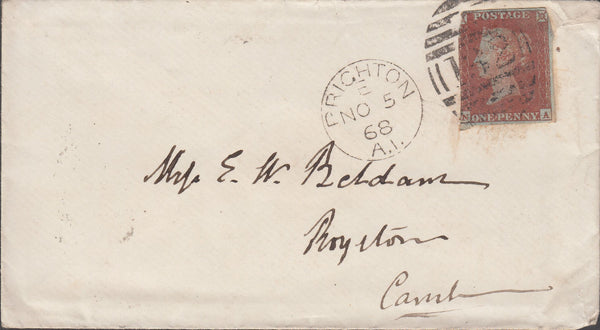 POSTAGE
N A
ONE PENNY
BRIGHTON
E
NO 5
68
A.I.
Miss E. W. Beldam
Royston
Camb